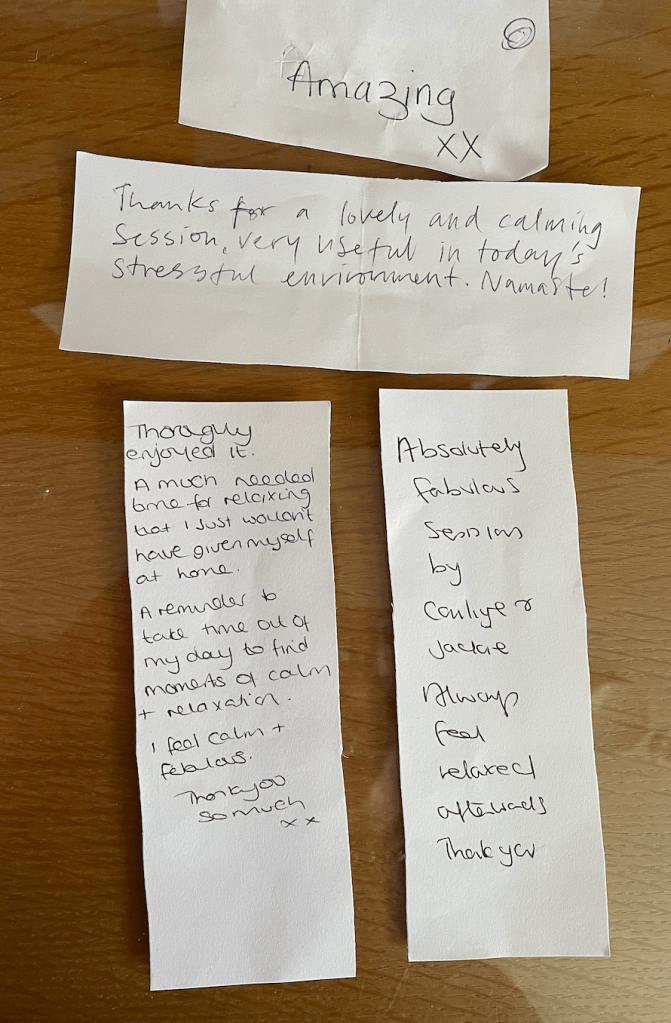 Amazing
XX
Thanks for a lovely and calming
Session, very useful in today's
stressful environment. Namaste!
Thoroughly
enjoyed it.
A much needed
time for relaxing
that I just wouldn't
have given myself
at home.
A reminder to
take time out of
my day to find
moments of calm
+ relaxation.
I feel calm +
fabulous.
Thankyou
so much
x x
Absolutely
fabulous
session
by
Jackie
Always
feel
relaxed
afterwards
Thank you